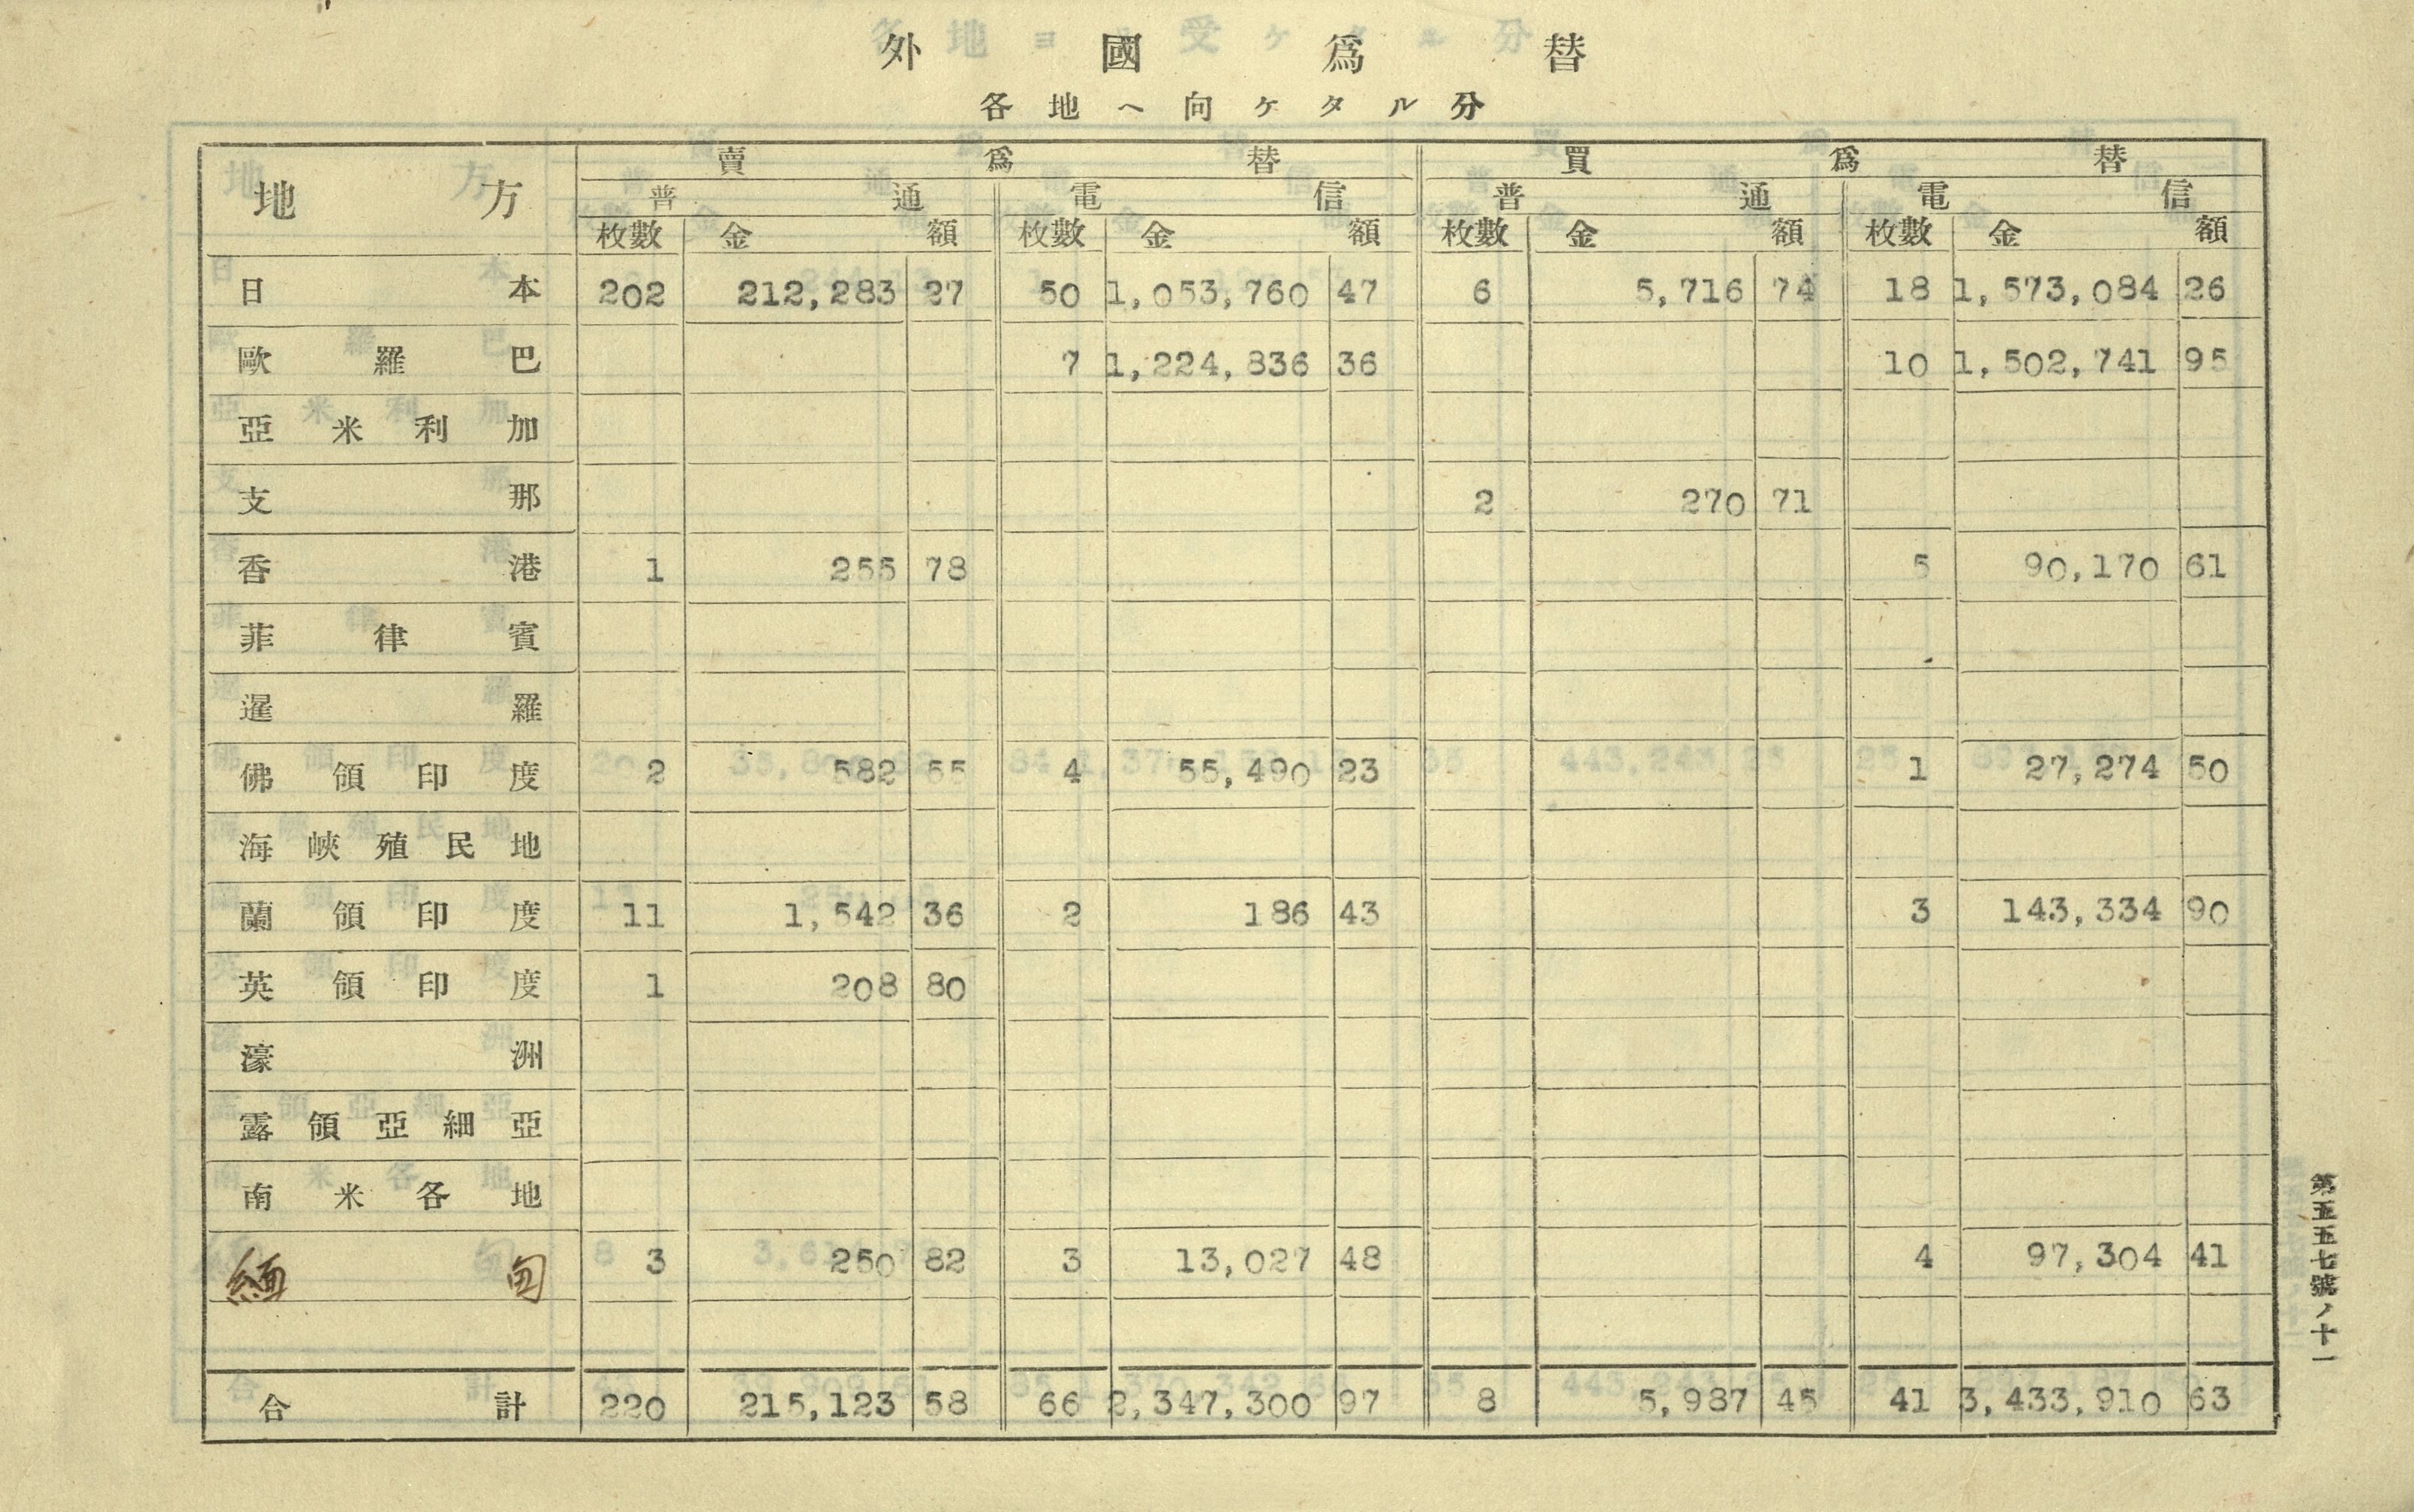 外國爲替
各地ヘ向ケタル分
地方 賣爲替 買爲替
普通 電信 普通 電信
枚數 金額 枚數 金額 枚數 金額 枚數 金額
日本 202 212,283 27 50 1,053,760 47 6 5,716 74 18 1,573,084 26
歐羅巴 7 1,224,836 36 10 1,502,741 95
亞米利加
支那 2 270 71
香港 1 255 78 5 90,170 61
菲律賓
暹羅
佛領印度 2 582 55 4 55,490 23 1 27,274 50
海峽殖民地
蘭領印度 11 1,542 36 2 186 43 3 143,334 90
英領印度 1 208 80
濠洲
露領亞細亞
南米各地
緬甸 3 250 82 3 13,027 48 4 97,304 41
合計 220 215,123 58 66 2,347,300 97 8 5,987 45 41 3,433,910 63
第五五七號ノ十一